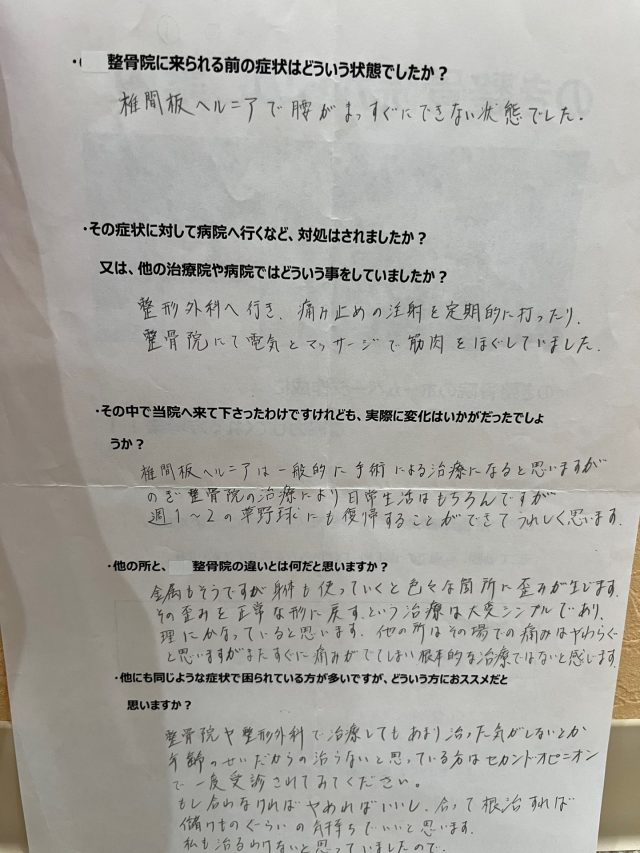 ・整骨院に来られる前の症状はどういう状態でしたか？
椎間板ヘルニアで腰がまっすぐにできない状態でした.
・その症状に対して病院へ行くなど、対処はされましたか？
又は、他の治療院や病院ではどういう事をしていましたか？
整形外科へ行き、痛み止めの注射を定期的に打ったり、
整骨院にて電気とマッサージで筋肉をほぐしていました.
・その中で当院へ来て下さったわけですけれども、実際に変化はいかがだったでしょ
うか？
椎間板ヘルニアは一般的に手術による治療になると思いますが
のぎ整骨院の治療により日常生活はもちろんですが
週1～2の草野球にも復帰することができてうれしく思います.
・他の所と、整骨院の違いとは何だと思いますか？
金属もそうですが身体も使っていくと色々な箇所に歪みが生じます.
その歪みを正常な形に戻すという治療は大変シンプルであり、
理にかなっていると思います. 他の所はその場での痛みはやわらぐ
と思いますがまたすぐに痛みがでてしまい根本的な治療ではないと感じます.
・他にも同じような症状で困られている方が多いですが、どういう方におススメだと
思いますか？
整骨院や整形外科で治療してもあまり治った気がしないとか
年齢のせいだからの治らないと思っている方はセカンドオピニオン
で一度受診されてみてください。
もし合わなければやめればいいし、合って根治すれば
儲けものぐらいの気持ちでいいと思います.
私も治るわけないと思っていましたので.